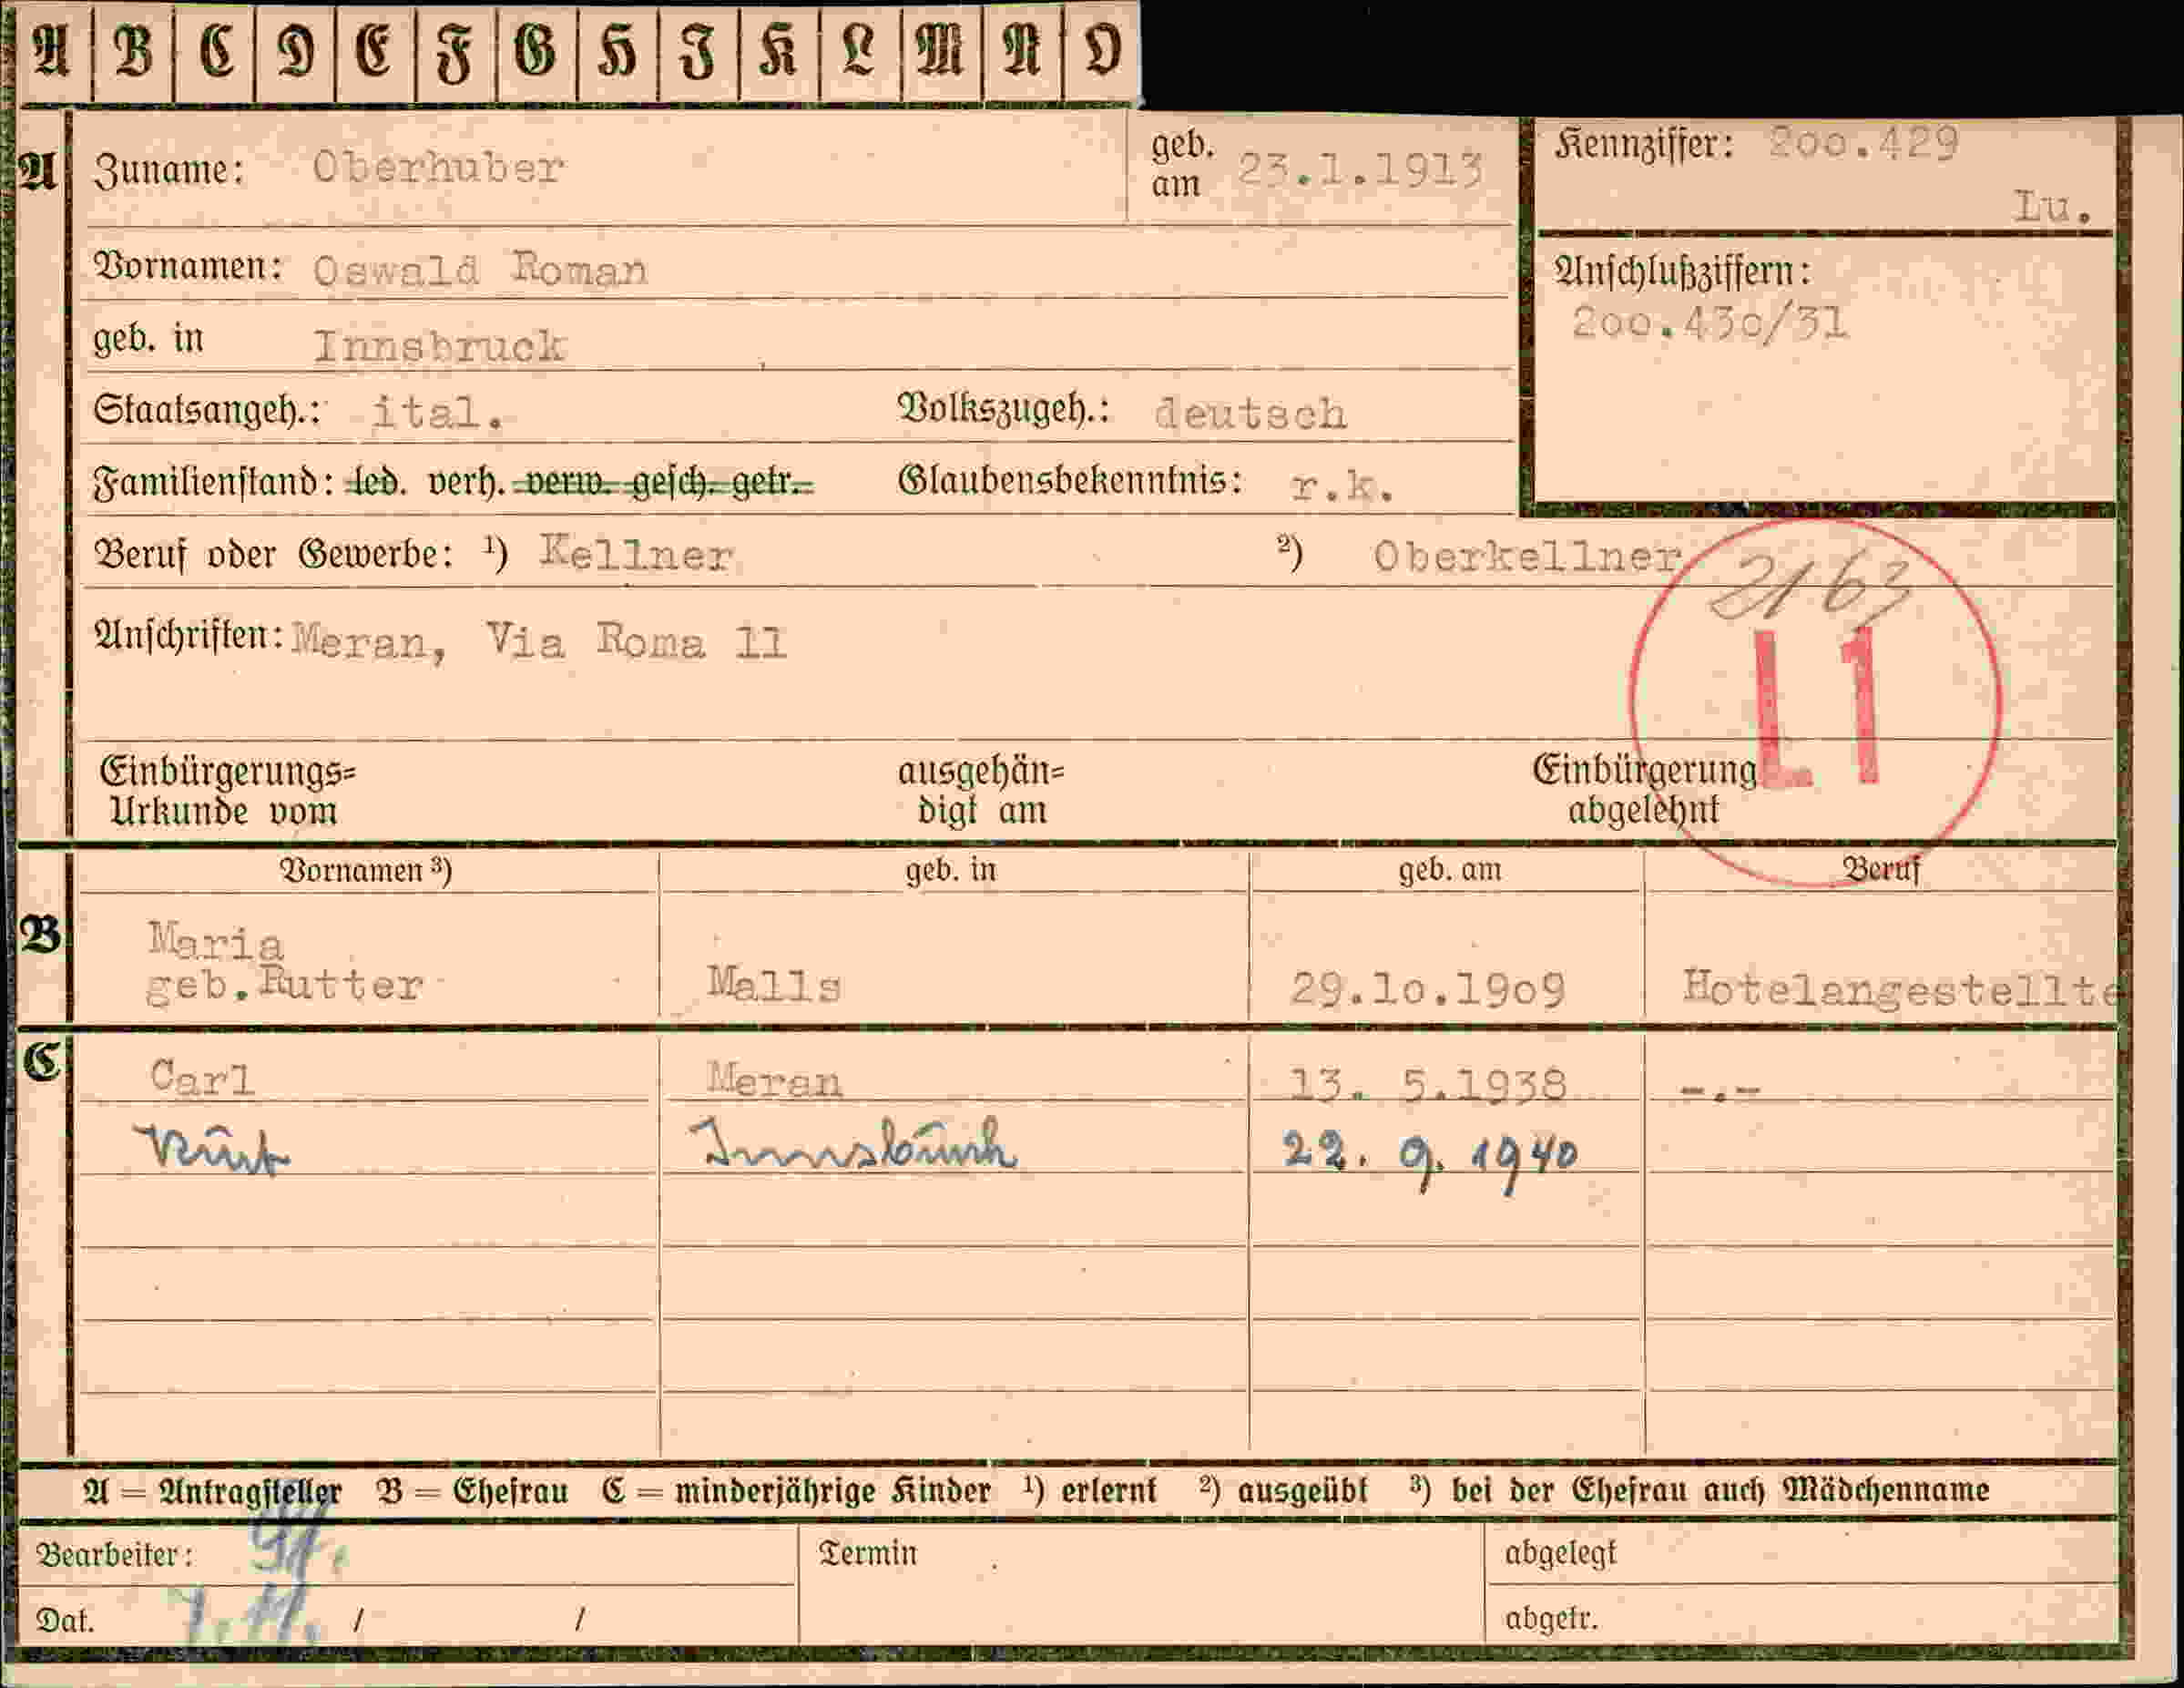 A B C D E F G H I K L M N O
A Zuname: Oberhuber geb. am 23.1.1913 Kennziffer: 2oo.429
Lu.
Vornamen: Oswald Roman Anschlußziffern:
geb. in Innsbruck 2oo.43o/31
Staatsangeh.: ital. Volkszugeh.: deutsch
Familienstand: led. verh. verw. gesch. getr. Glaubensbekenntnis: r.k.
Beruf oder Gewerbe: ¹) Kellner ²) Oberkellner
2163
Anschriften: Meran, Via Roma 11
L1
Einbürgerungs= ausgehän= Einbürgerung
Urkunde vom digt am abgelehnt
Vornamen ³) geb. in geb. am Beruf
B Maria
geb. Rutter Malls 29.1o.19o9 Hotelangestellte
C Carl Meran 13. 5.1938 -.-
Kurt Innsbruck 22. 9. 1940
A = Antragsteller B = Ehefrau C = minderjährige Kinder ¹) erlernt ²) ausgeübt ³) bei der Ehefrau auch Mädchenname
Bearbeiter: Termin abgelegt
Dat. / / abgetr.